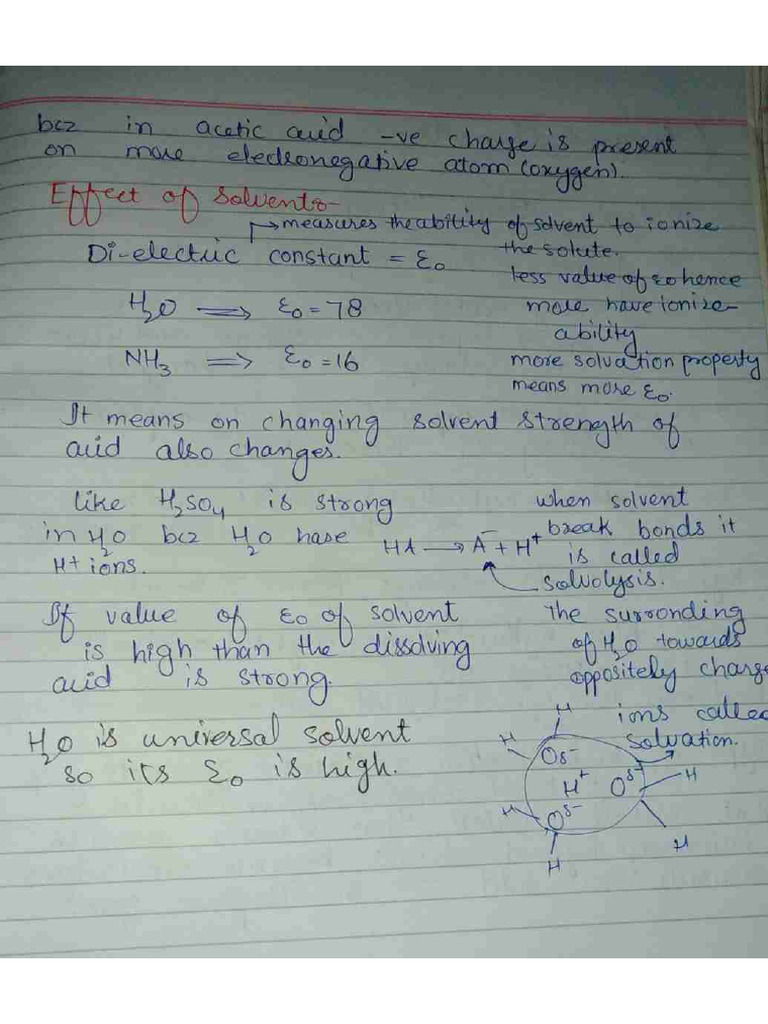 bcz in acetic acid -ve charge is present
on more electronegative atom (oxygen).
Effect of Solvents-
→ measures the ability of solvent to ionize
the solute.
Di-electric constant = ε₀
less value of ε₀ hence
H₂O ⟹ ε₀ = 78
more have ionize-
ability
NH₃ ⟹ ε₀ = 16
more solvation property
means more ε₀.
It means on changing solvent strength of
acid also changes.
like H₂SO₄ is strong
in H₂O bcz H₂O have
H+ ions.
HA → A⁻ + H⁺
when solvent
break bonds it
is called
solvolysis.
If value of ε₀ of solvent
is high than the dissolving
acid is strong.
The surronding
of H₂O towards
oppositely charge
ions called
solvation.
H₂O is universal solvent
so its ε₀ is high.
H
H
Oδ⁻
H⁺
Oδ⁻
H
H
H
Oδ⁻
H